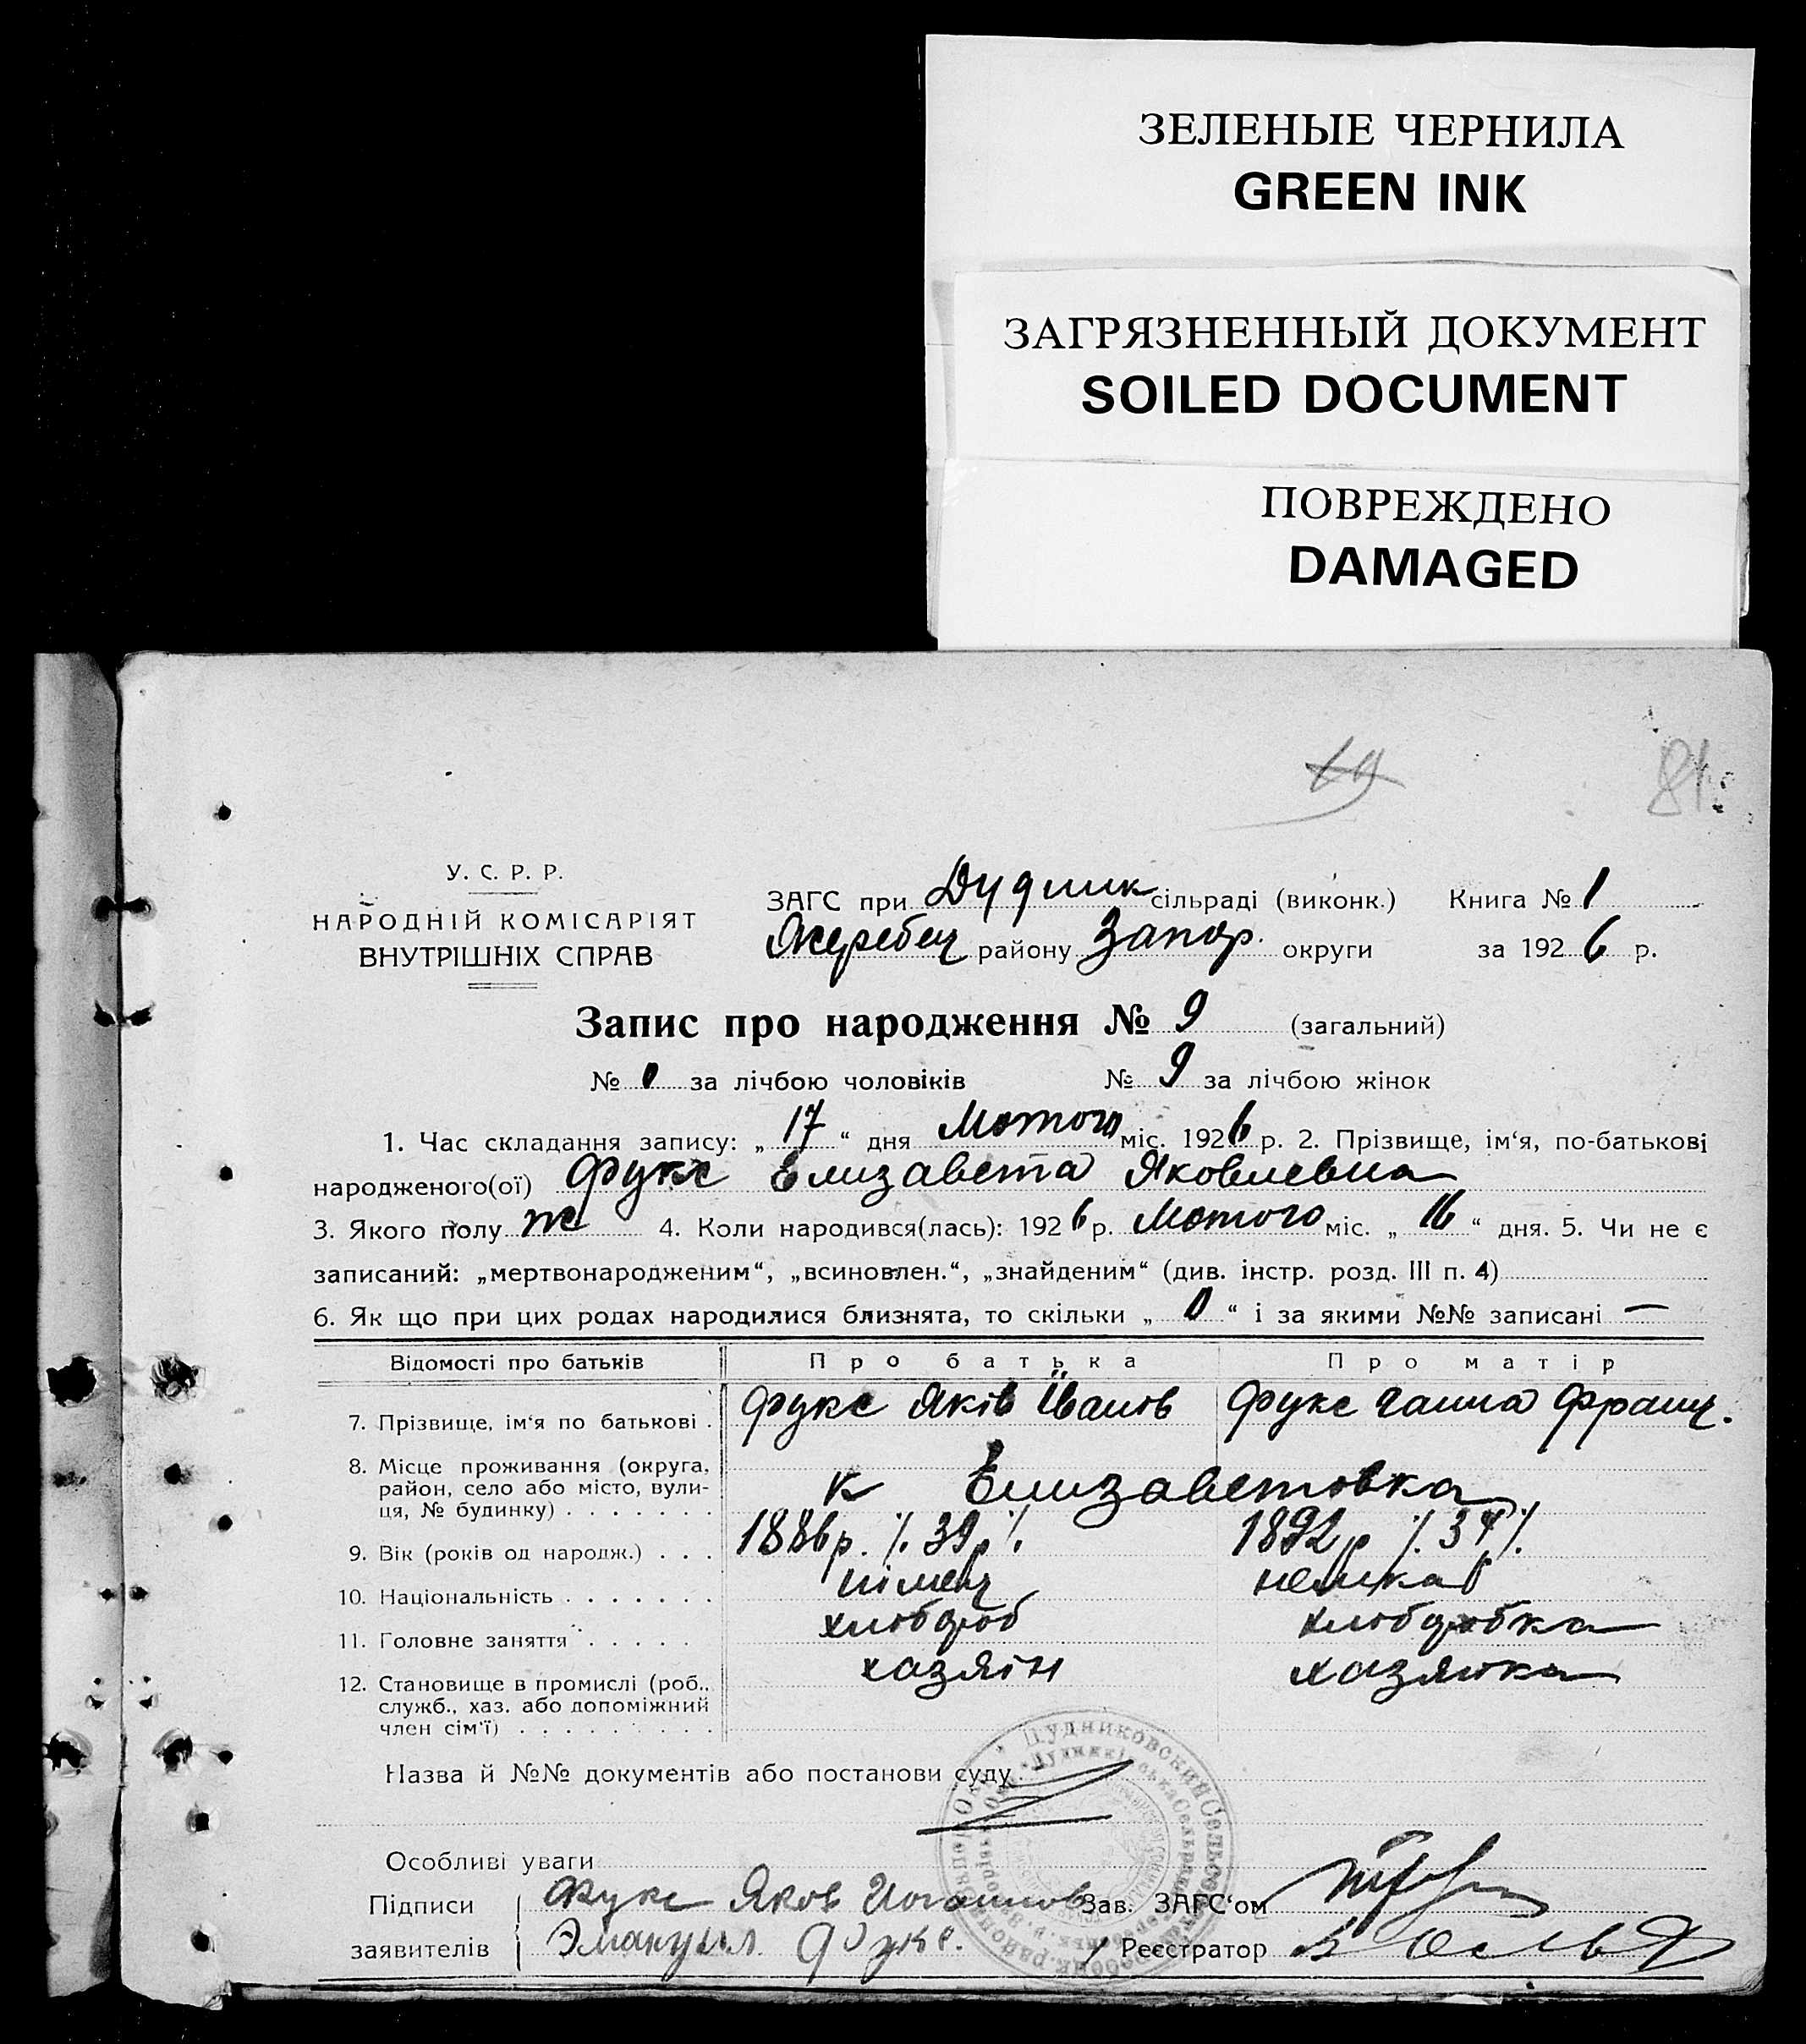 ЗЕЛЕНЫЕ ЧЕРНИЛА
GREEN INK
ЗАГРЯЗНЕННЫЙ ДОКУМЕНТ
SOILED DOCUMENT
ПОВРЕЖДЕНО
DAMAGED
19 81
У. С. Р. Р.
НАРОДНІЙ КОМІСАРІЯТ
ВНУТРІШНІХ СПРАВ
ЗАГС при Дудник сільраді (виконк.) Книга № 1
Жеребец району Запор. округи за 1926 р.
Запис про народження № 9 (загальний)
№ 0 за лічбою чоловіків № 9 за лічбою жінок
1. Час складання запису: „17“ дня Лютого міс. 1926 р. 2. Прізвище, ім‘я, по-батькові
народженого(ої) Фукс Елизавета Яковлевна
3. Якого полу ж 4. Коли народився(лась): 1926 р. Лютого міс. „16“ дня. 5. Чи не є
записаний: „мертвонародженим“, „всиновлен.“, „знайденим“ (див. інстр. розд. III п. 4)
6. Як що при цих родах народилися близнята, то скільки „0“ і за якими №№ записані —
Відомості про батьків Про батька Про матір
7. Прізвище, ім‘я по батькові . Фукс Яків Іванов Фукс Ганна Франц.
8. Місце проживання (округа,
район, село або місто, вули-
ця, № будинку) . . . . . . . к Елизаветовка
9. Вік (років од народж.) . . . 1886р. ·/. 39р ·/. 1892р ·/. 34 ·/.
10. Національність . . . . . . . німец немка
11. Головне заняття . . . . . хлібороб хліборобка
12. Становище в промислі (роб.,
служб., хаз. або допоміжний
член сім‘ї) . . . . . . . . . хазяін хазяйка
Назва й №№ документів або постанови суду
Особливі уваги
Підписи Фукс Яков Иоганнов Зав. ЗАГС‘ом
заявителів Эмануил Фукс. Реєстратор
Дудниковский Сельсовет